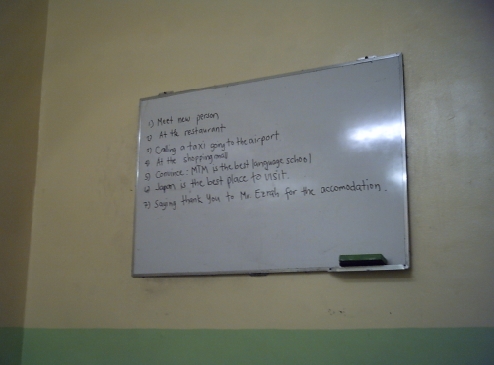 1) Meet new person
2) At the restaurant
3) Calling a taxi going to the airport
4) At the shopping mall
5) Convince : MTM is the best language school
6) Japan is the best place to visit.
7) Saying thank you to Mr. Ezrah for the accomodation.